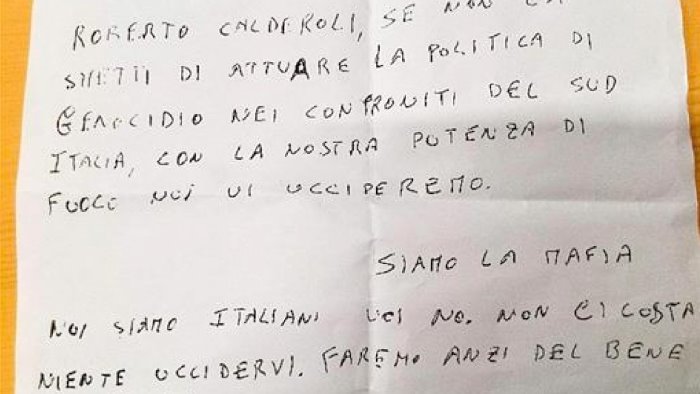 ROBERTO CALDEROLI, SE NON LA
SMETTI DI ATTUARE LA POLITICA DI
GENOCIDIO NEI CONFRONITI DEL SUD
ITALIA, CON LA NOSTRA POTENZA DI
FUOCO NOI VI UCCIDEREMO.
SIAMO LA MAFIA
NOI SIAMO ITALIANI VOI NO. NON CI COSTA
NIENTE UCCIDERVI. FAREMO ANZI DEL BENE